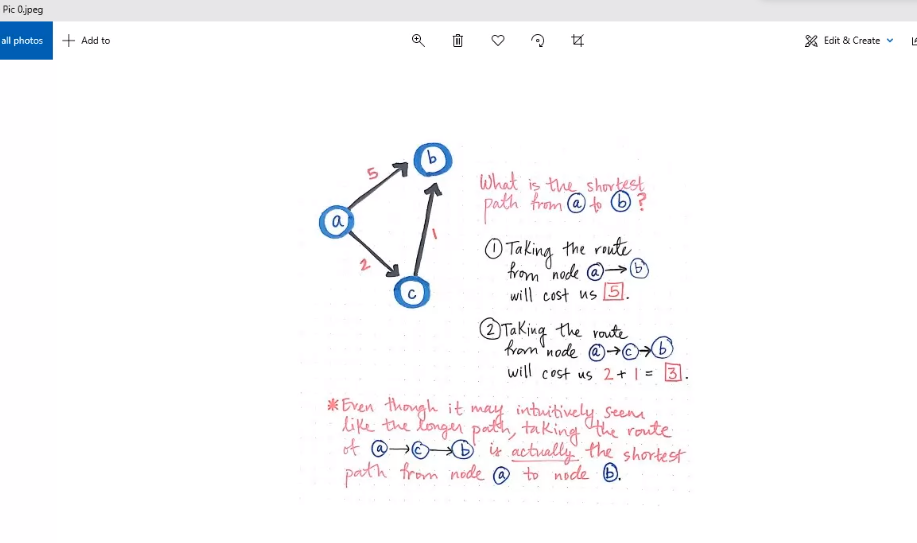 Pic 0.jpeg
all photos
Add to
Edit & Create
b
5
a
1
2
c
What is the shortest
path from a to b?
1 Taking the route
from node a→b
will cost us 5.
2 Taking the route
from node a→c→b
will cost us 2+1=3.
*Even though it may intuitively seem
like the longer path, taking the route
of a→c→b is actually the shortest
path from node a to node b.